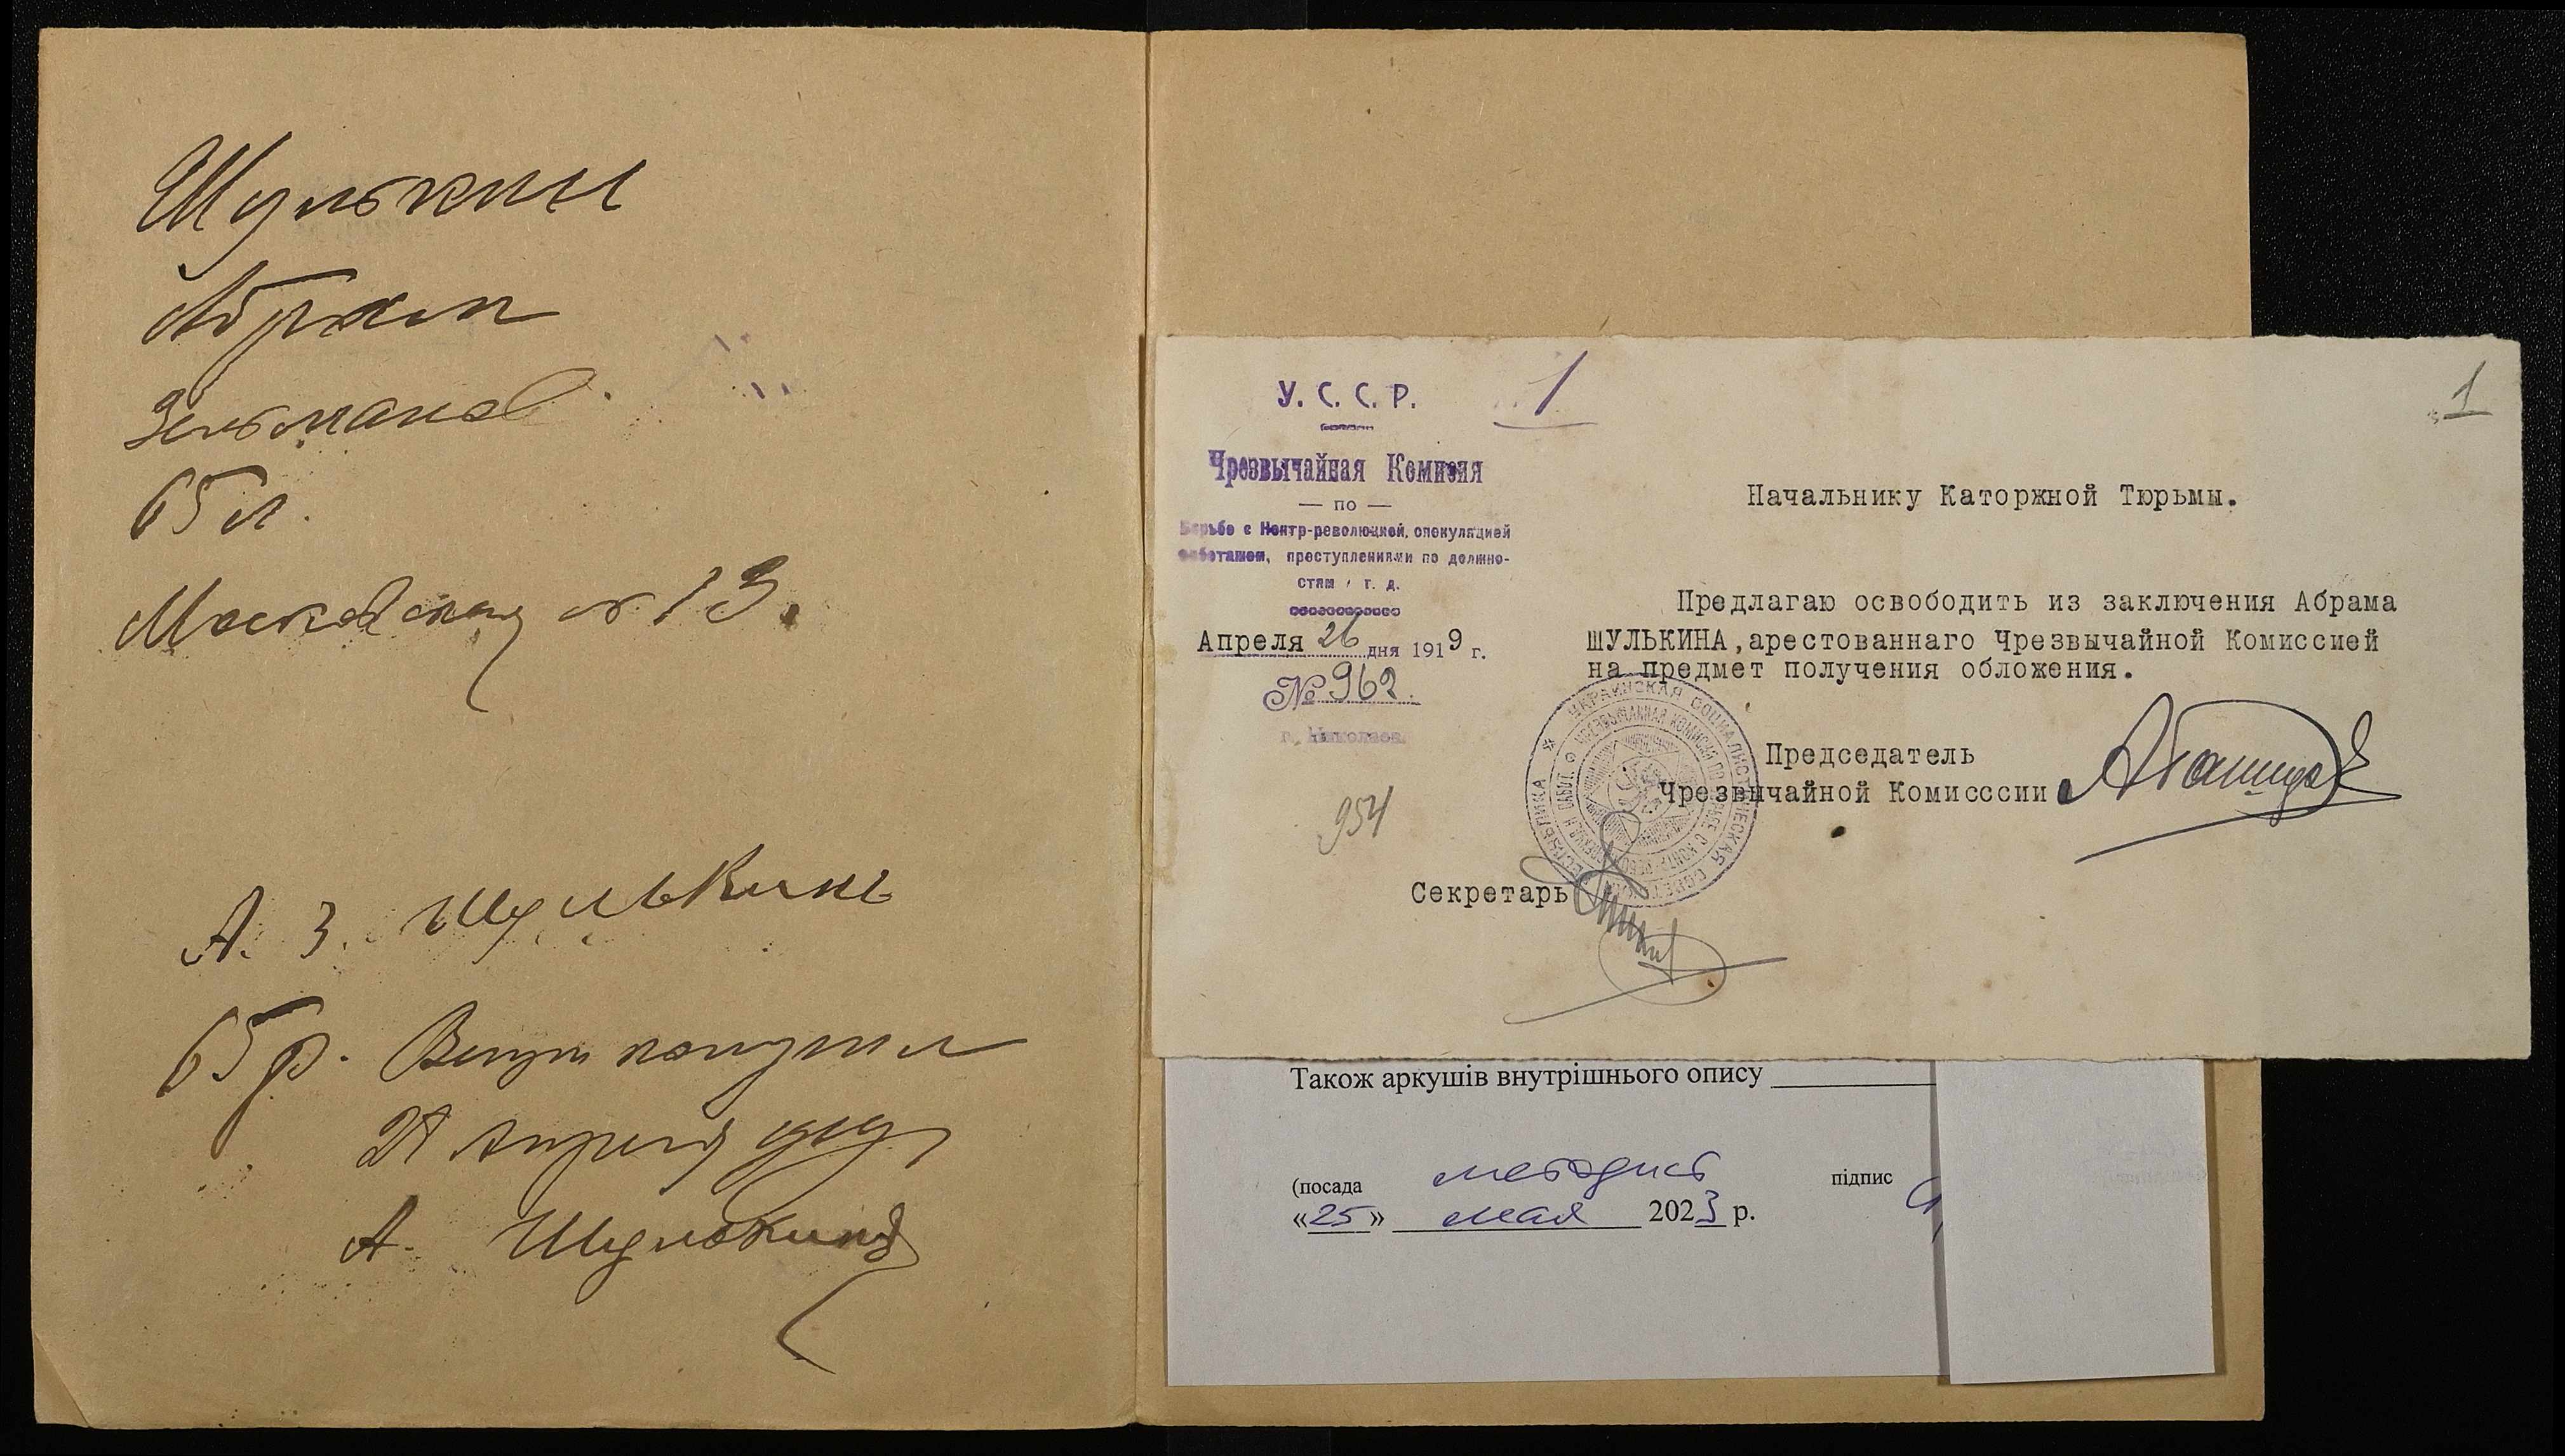 Шулькин
Абрам
Зельманов.
65 л.
Московская № 13.
А. З. Шулькинъ
65 р. Вещи получил
апреля 1919
А. Шулькинъ
У. С. С. Р.
1
Чрезвычайная Комизия
— по —
Борьбе с Контр-революцией, спекуляцией
саботажем, преступлениями по должно-
стям и г. д.
Апреля 26 дня 1919 г.
№ 962.
г. Николаев.
954
1
Начальнику Каторжной Тюрьмы.
Предлагаю освободить из заключения Абрама
ШУЛЬКИНА,арестованнаго Чрезвычайной Комиссией
на предмет получения обложения.
Председатель
Чрезвычайной Комисссии
Секретарь
УКРАИНСКАЯ СОЦИАЛИСТИЧЕСКАЯ СОВЕТСКАЯ РЕСПУБЛИКА
ЧРЕЗВЫЧАЙНАЯ КОМИСИЯ ПО БОРЬБЕ С КОНТР
Також аркушів внутрішнього опису
(посада методист підпис
«25» мая 2023 р.